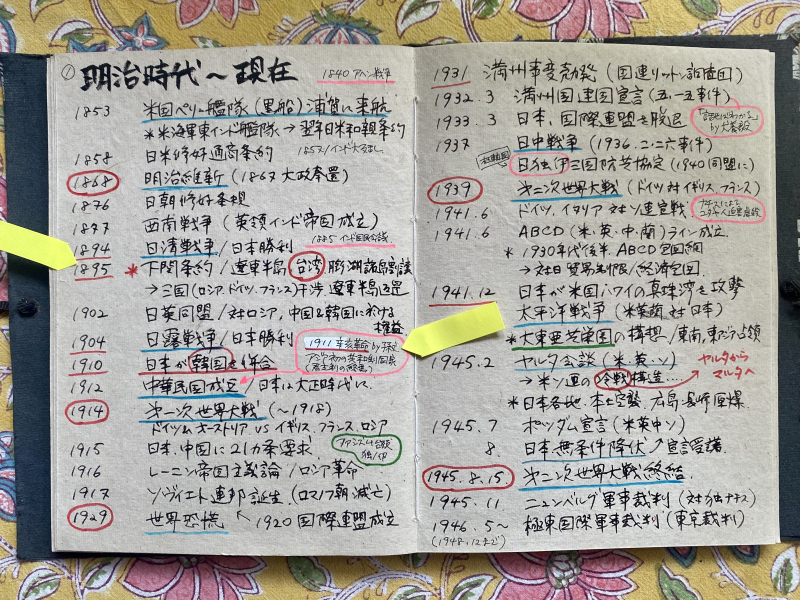 ① 明治時代〜現在
1840 アヘン戦争
1853 米国ペリー艦隊(黒船)浦賀に来航
*米海軍東インド艦隊→翌年日米和親条約
1858 日米修好通商条約 1857/インド大反乱
1868 明治維新(1867 大政奉還)
1876 日朝修好条規
1877 西南戦争(英領インド帝国成立)
1894 日清戦争/日本勝利 1885 インド国民会議
1895 *下関条約/遼東半島 台湾 膨湖諸島割譲
→三国(ロシア、ドイツ、フランス)干渉 遼東半島返還
1902 日英同盟/対ロシア、中国&韓国に於ける権益
1904 日露戦争/日本勝利
1911 辛亥革命 by 孫文
アジア初の共和制国家
1910 日本が韓国を併合
1912 中華民国成立/日本は大正時代に.
1914 第一次世界大戦(〜1918)
ドイツ.オーストリア VS イギリス.フランス.ロシア
1915 日本、中国に21カ条要求
ファシズム台頭
独/伊
1916 レーニン帝国主義論/ロシア革命
1917 ソヴィエト連邦誕生.(ロマノフ朝滅亡)
1929 世界恐慌 ← 1920 国際連盟成立
1931 満州事変勃発(国連リットン調査団)
1932.3 満州国建国宣言(五・一五事件)
「話せばわかる」
by 犬養毅
1933.3 日本、国際連盟を脱退
1937 日中戦争(1936.二・二六事件)
日独伊三国防共協定(1940 同盟に)
1939 第二次世界大戦(ドイツ対イギリス.フランス)
1941.6 ドイツ、イタリア 対ソ連宣戦
ナチスによる
ユダヤ人迫害虐殺
1941.6 ABCD(米・英・中・蘭)ライン成立.
*1930年代後半.ABCD包囲網
→対日貿易制限/経済包囲.
1941.12 日本が米国ハワイの真珠湾を攻撃
太平洋戦争(米英蘭 対 日本)
*大東亜共栄圏の構想/東南,東アジア占領
1945.2 ヤルタ会談(米.英.ソ)
→米ソ連の冷戦構造....
ヤルタから
マルタへ
*日本各地・本土空襲、広島・長崎原爆
1945.7 ポツダム宣言(米英中)
8. 日本 無条件降伏 宣言受諾.
1945.8.15. 第二次世界大戦終結.
1945.11 ニュンベルグ軍事裁判(対独ナチス)
1946.5〜 極東国際軍事裁判(東京裁判)
(1948.12まで)